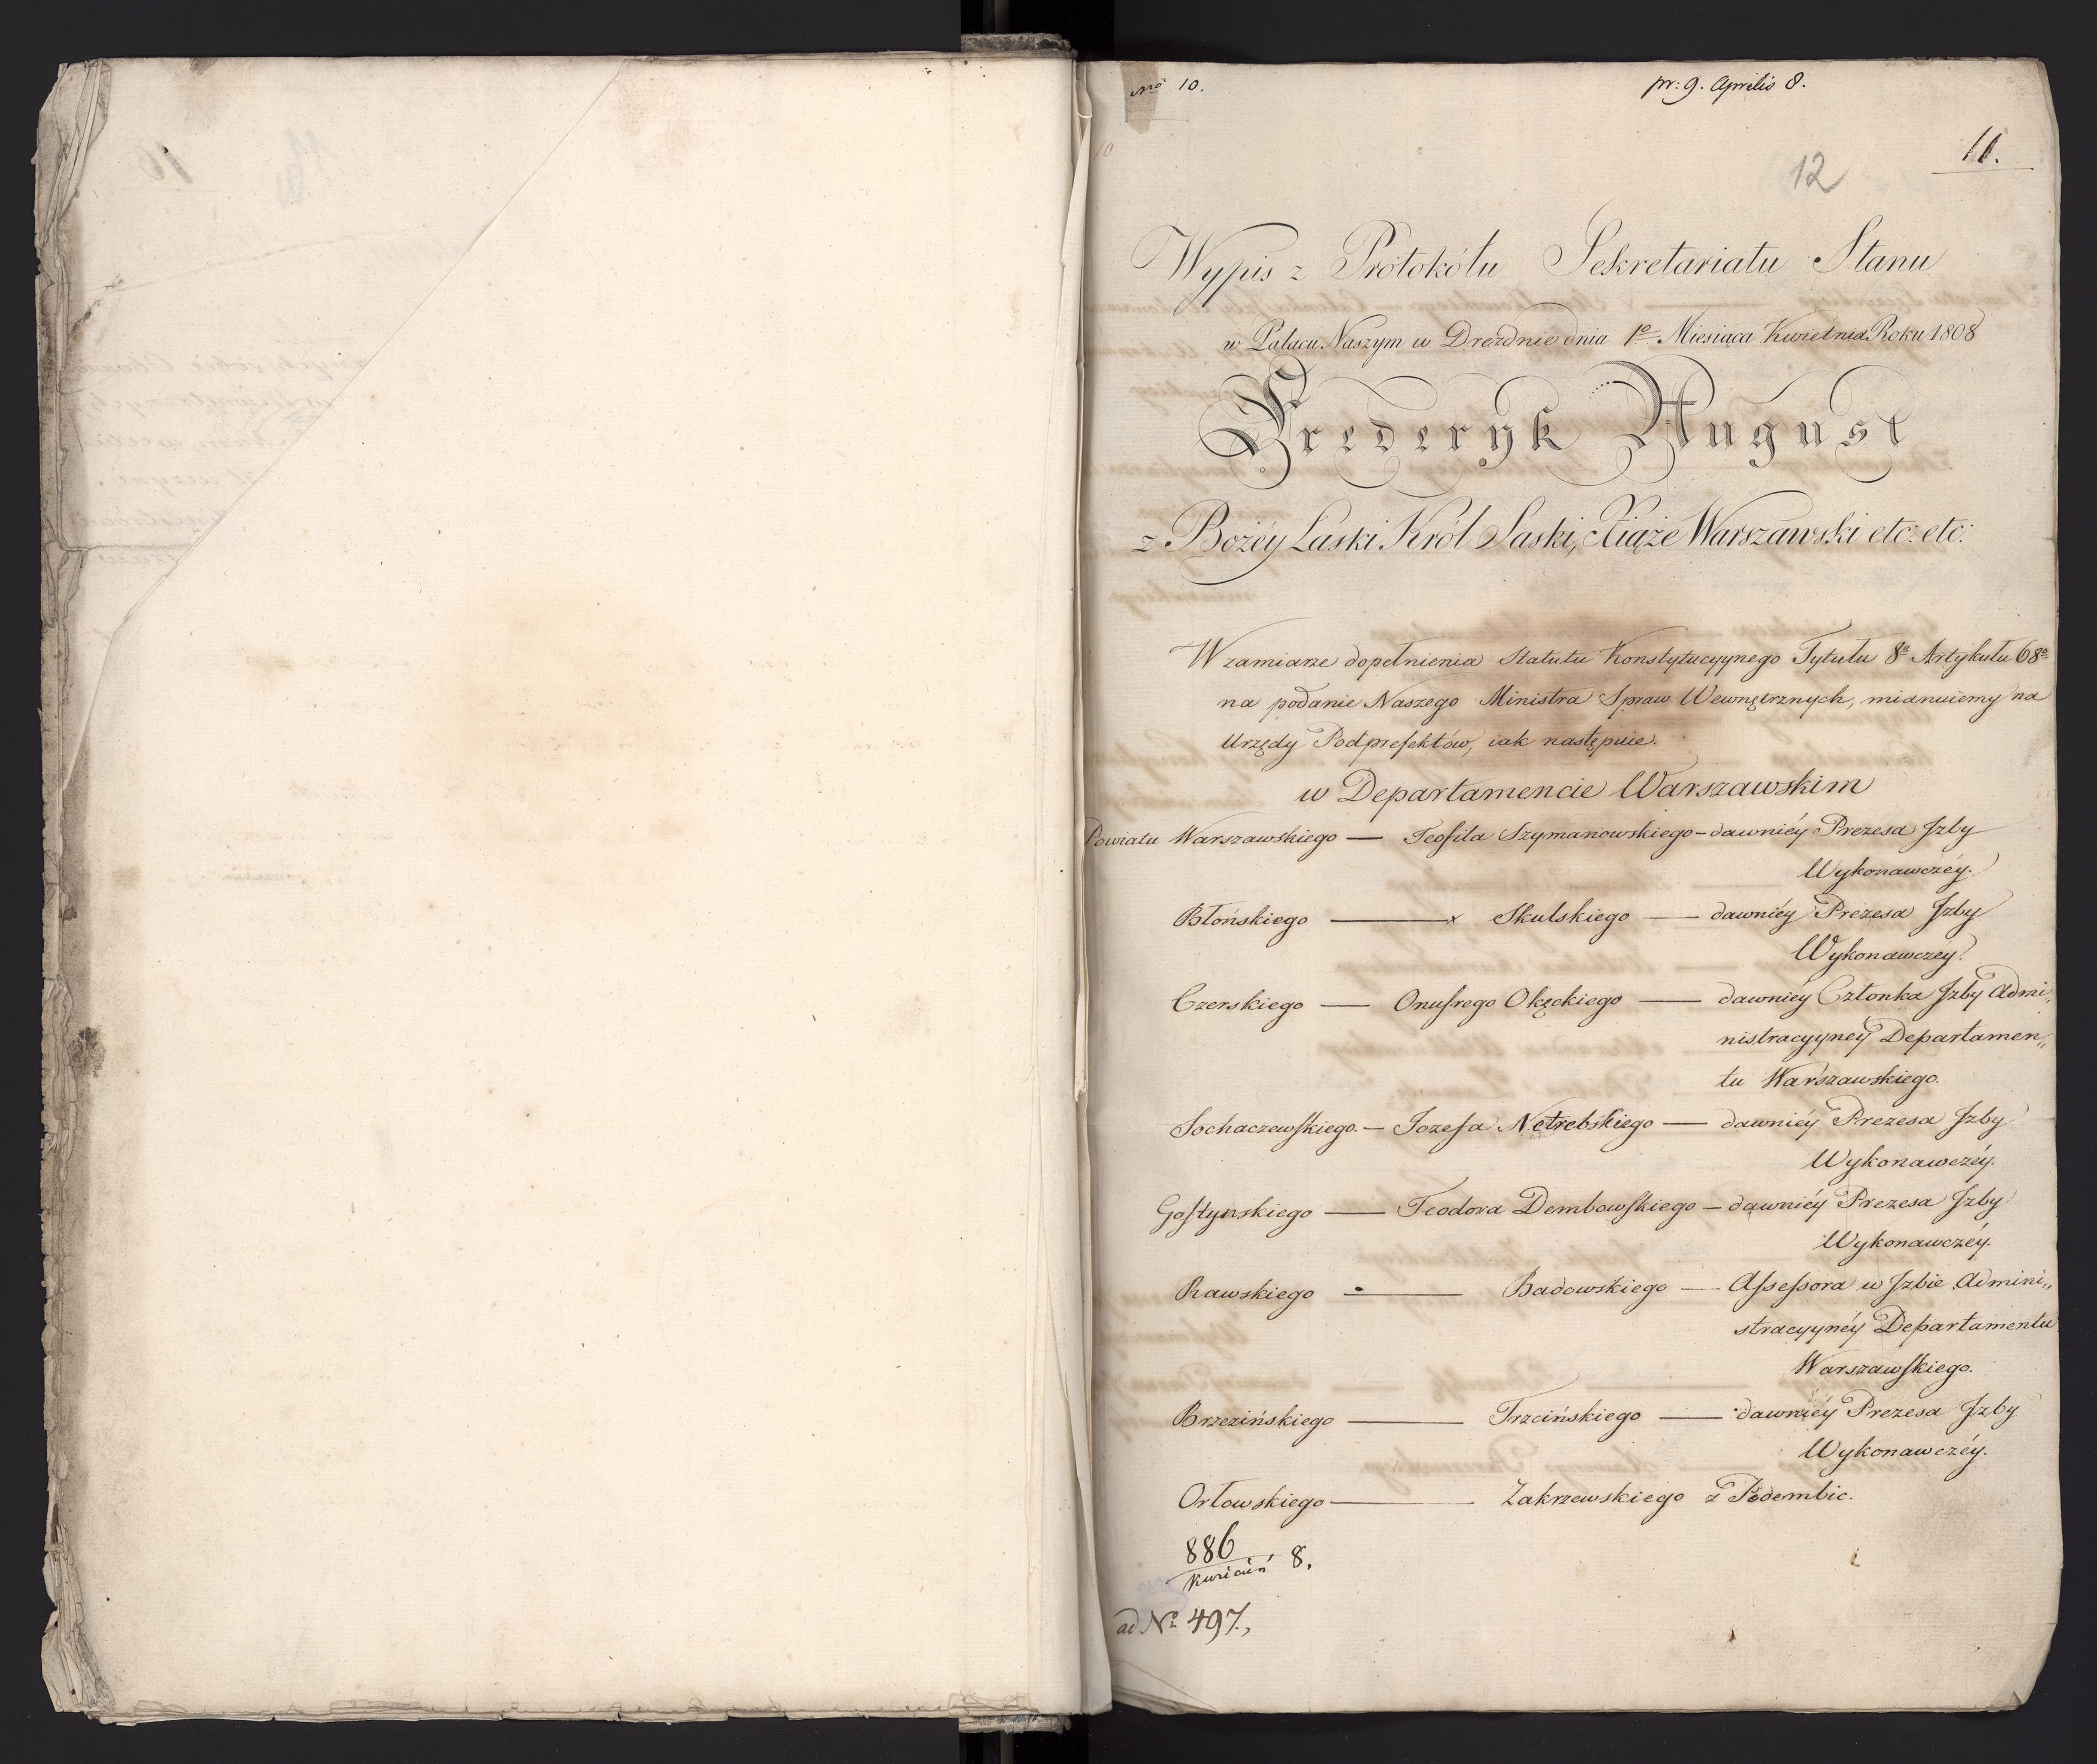 Nro 10.
pr: 9. Aprilis 8.
10
12
11.
Wypis z Protokółu Sekretariatu Stanu
w Pałacu Naszym w Dreźdnie dnia 1o Miesiąca Kwietnia Roku 1808
Frederyk August
z Bożéy Łaski Król Saski, Xiąże Warszawski etc: etc:
W zamiarze dopełnienia Statutu Konstytucyynego Tytułu 8o Artykułu 68o
na podanie Naszego Ministra Spraw Wewnętrznych, mianuiemy na
Urzędy Podprefektów, iak następuie.
w Departamencie Warszawskim
Powiatu Warszawskiego — Teofila Szymanowskiego - dawniéy Prezesa Jzby
Wykonawczéy.
Błońskiego — x Skulskiego — dawniéy Prezesa Jzby
Wykonawczey.
Czerskiego — Onufrego Okęckiego — dawniéy Członka Jzby Admi„
nistracyyney Departamen„
tu Warszawskiego.
Sochaczewskiego. — Jozefa Netrebskiego — dawniéy Prezesa Jzby
Wykonawczéy.
Gostynskiego — Teodora Dembowskiego — dawniéy Prezesa Jzby
Wykonawczéy.
Rawskiego — Badowskiego — Assessora w Jzbie Admini„
stracyynéy Departamentu
Warszawskiego.
Brzezińskiego — Trzcińskiego — dawniéy Prezesa Jzby
Wykonawczéy.
Orłowskiego — Zakrzewskiego z Podembic.
886
Kwiecień 8.
ad No 497.,